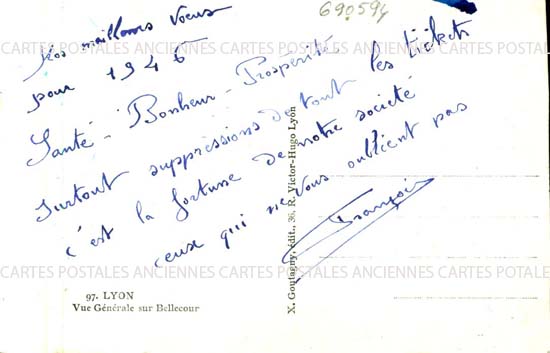 690594
Nos meilleurs Voeux
pour 1946
Santé - Bonheur - Prospérité
surtout suppressions de tout les tickets
c'est la fortune de notre société
ceux qui ne vous oublient pas
François
CARTES POSTALES ANCIENNES CARTES POSTALES ANCIENNES CARTES POSTALES
97. LYON
Vue Générale sur Bellecour
X. Goutagny, édit., 36, R. Victor-Hugo Lyon
CARTES POSTALES ANCIENNES CARTES POSTALES ANCIENNES CARTES POTALE